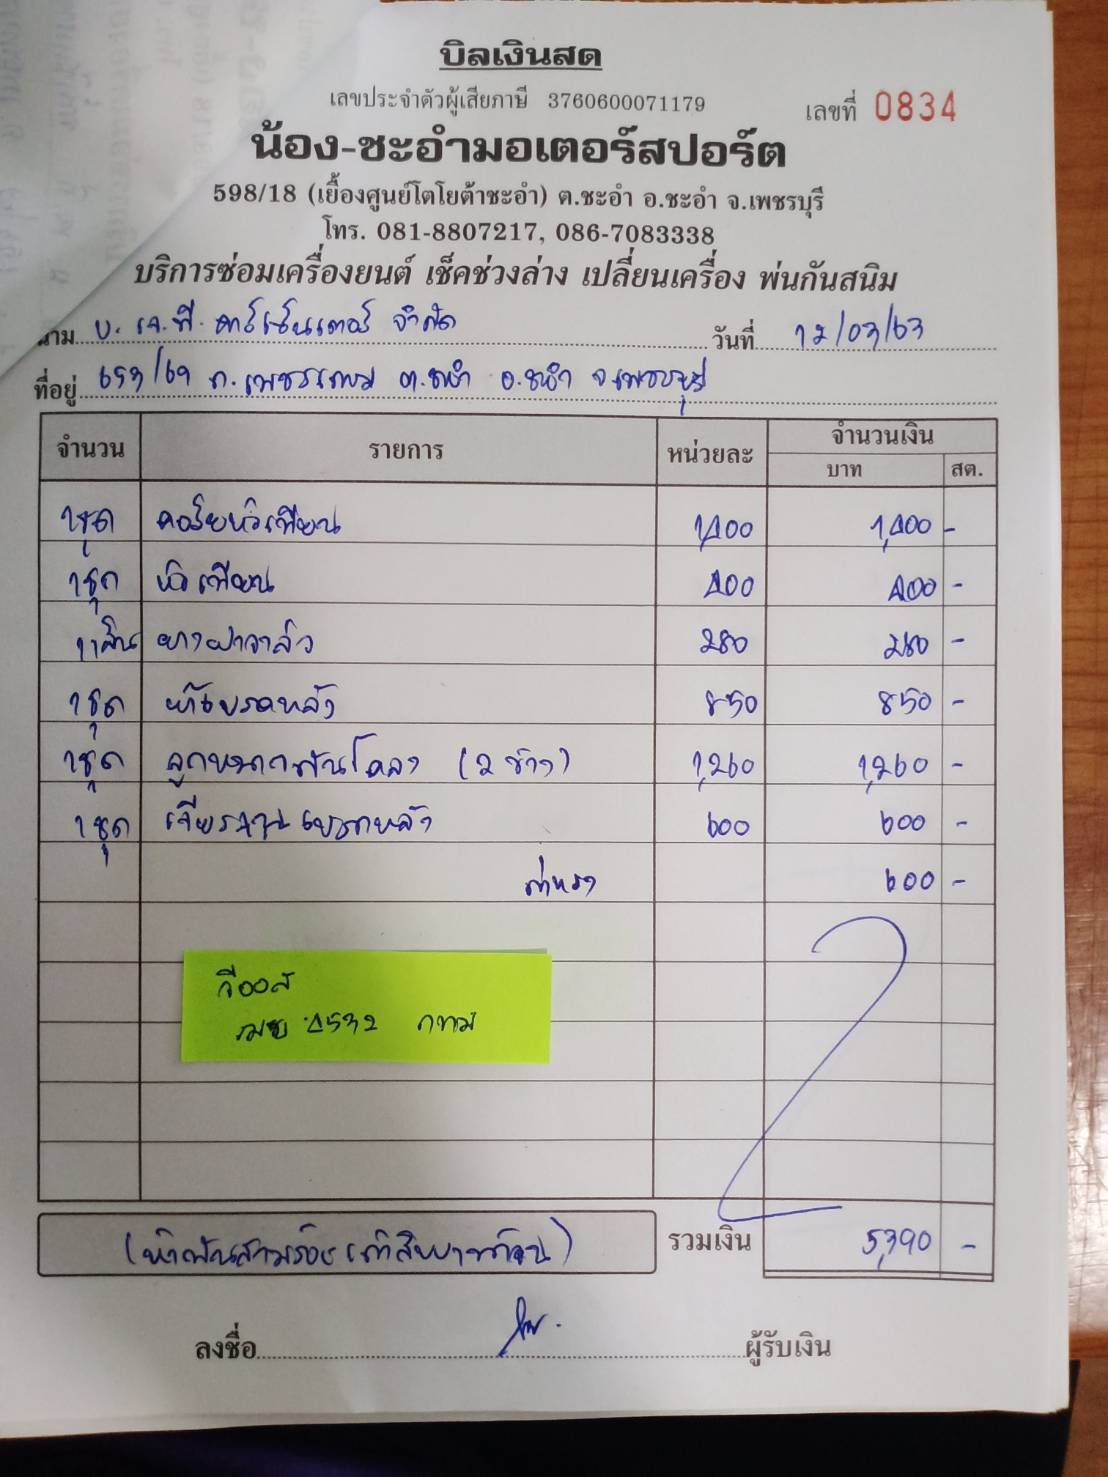 บิลเงินสด
เลขประจำตัวผู้เสียภาษี 3760600071179
เลขที่ 0834
น้อง-ชะอำมอเตอร์สปอร์ต
598/18 (เยื้องศูนย์โตโยต้าชะอำ) ต.ชะอำ อ.ชะอำ จ.เพชรบุรี
โทร. 081-8807217, 086-7083338
บริการซ่อมเครื่องยนต์ เช็คช่วงล่าง เปลี่ยนเครื่อง พ่นกันสนิม
นาม บ. เจ.พี. คาร์เซ็นเตอร์ จำกัด วันที่ 12/03/63
ที่อยู่ 653/69 ถ.เพชรเกษม ต.ชะอำ อ.ชะอำ จ.เพชรบุรี
จำนวน รายการ หน่วยละ จำนวนเงิน
บาท สต.
1ชุด คอร์ยหัวเทียน 1,400 1,400 -
1ชุด หัวเทียน 400 400 -
1เส้น ยางฝาวาล์ว 280 280 -
1ชุด ผ้าเบรคหลัง 850 850 -
1ชุด ลูกหมากกันโคลง (2 ข้าง) 1,260 1,260 -
1ชุด เจียรจานเบรคหลัง 600 600 -
ค่าแรง 600 -
วีออส
4532 กทม
(ห้าพันสามร้อยเก้าสิบบาทถ้วน) รวมเงิน 5,390 -
ลงชื่อ ผู้รับเงิน